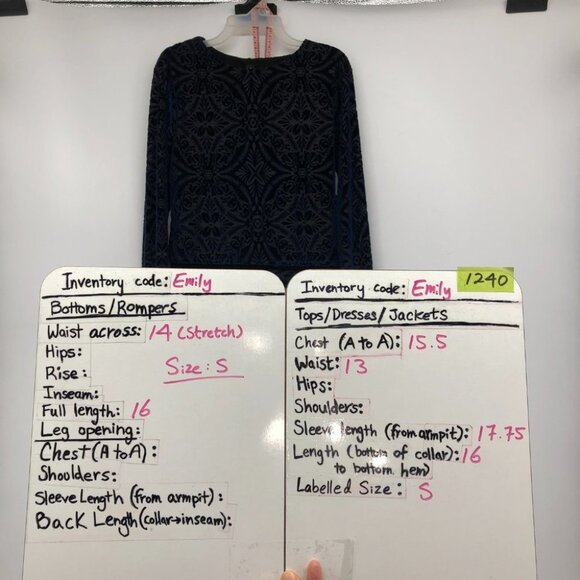 Inventory code: Emily
Bottoms/Rompers
Waist across: 14 (Stretch)
Hips:
Rise:
Size: S
Inseam:
Full length: 16
Leg opening:
Chest (A to A):
Shoulders:
Sleeve Length (from armpit):
Back Length (collar→inseam):
Inventory code: Emily
1240
Tops/Dresses/Jackets
Chest (A to A): 15.5
Waist: 13
Hips:
Shoulders:
Sleeve length (from armpit): 17.75
Length (bottom of collar): 16
to bottom hem)
Labelled Size: S